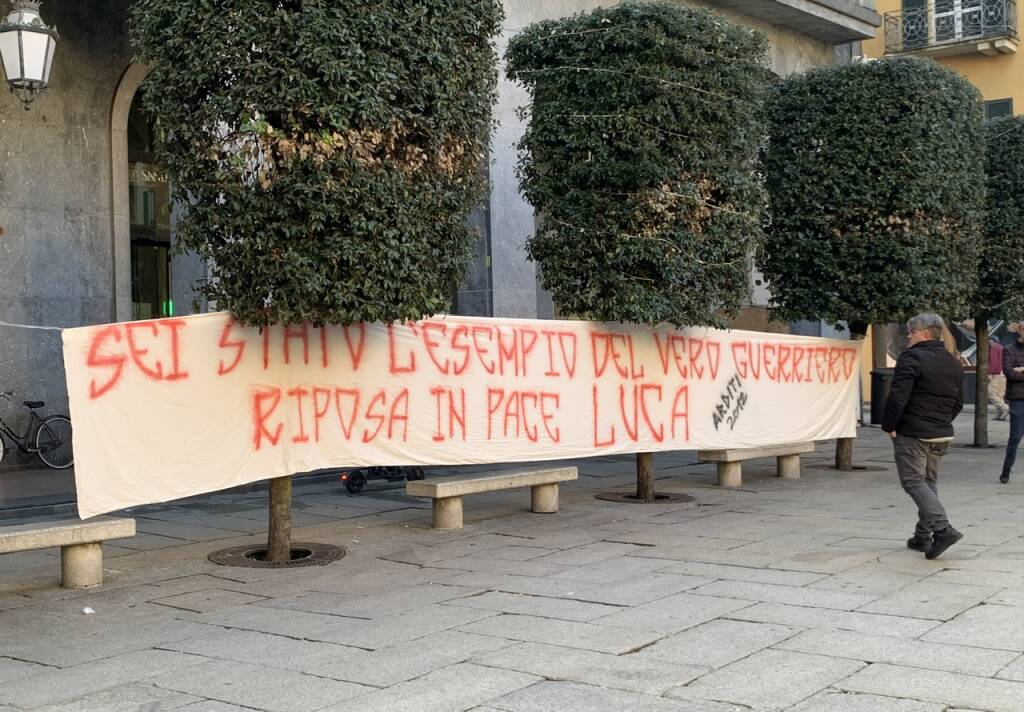 SEI STATO L'ESEMPIO DEL VERO GUERRIERO
RIPOSA IN PACE LUCA
ARDITI
2012